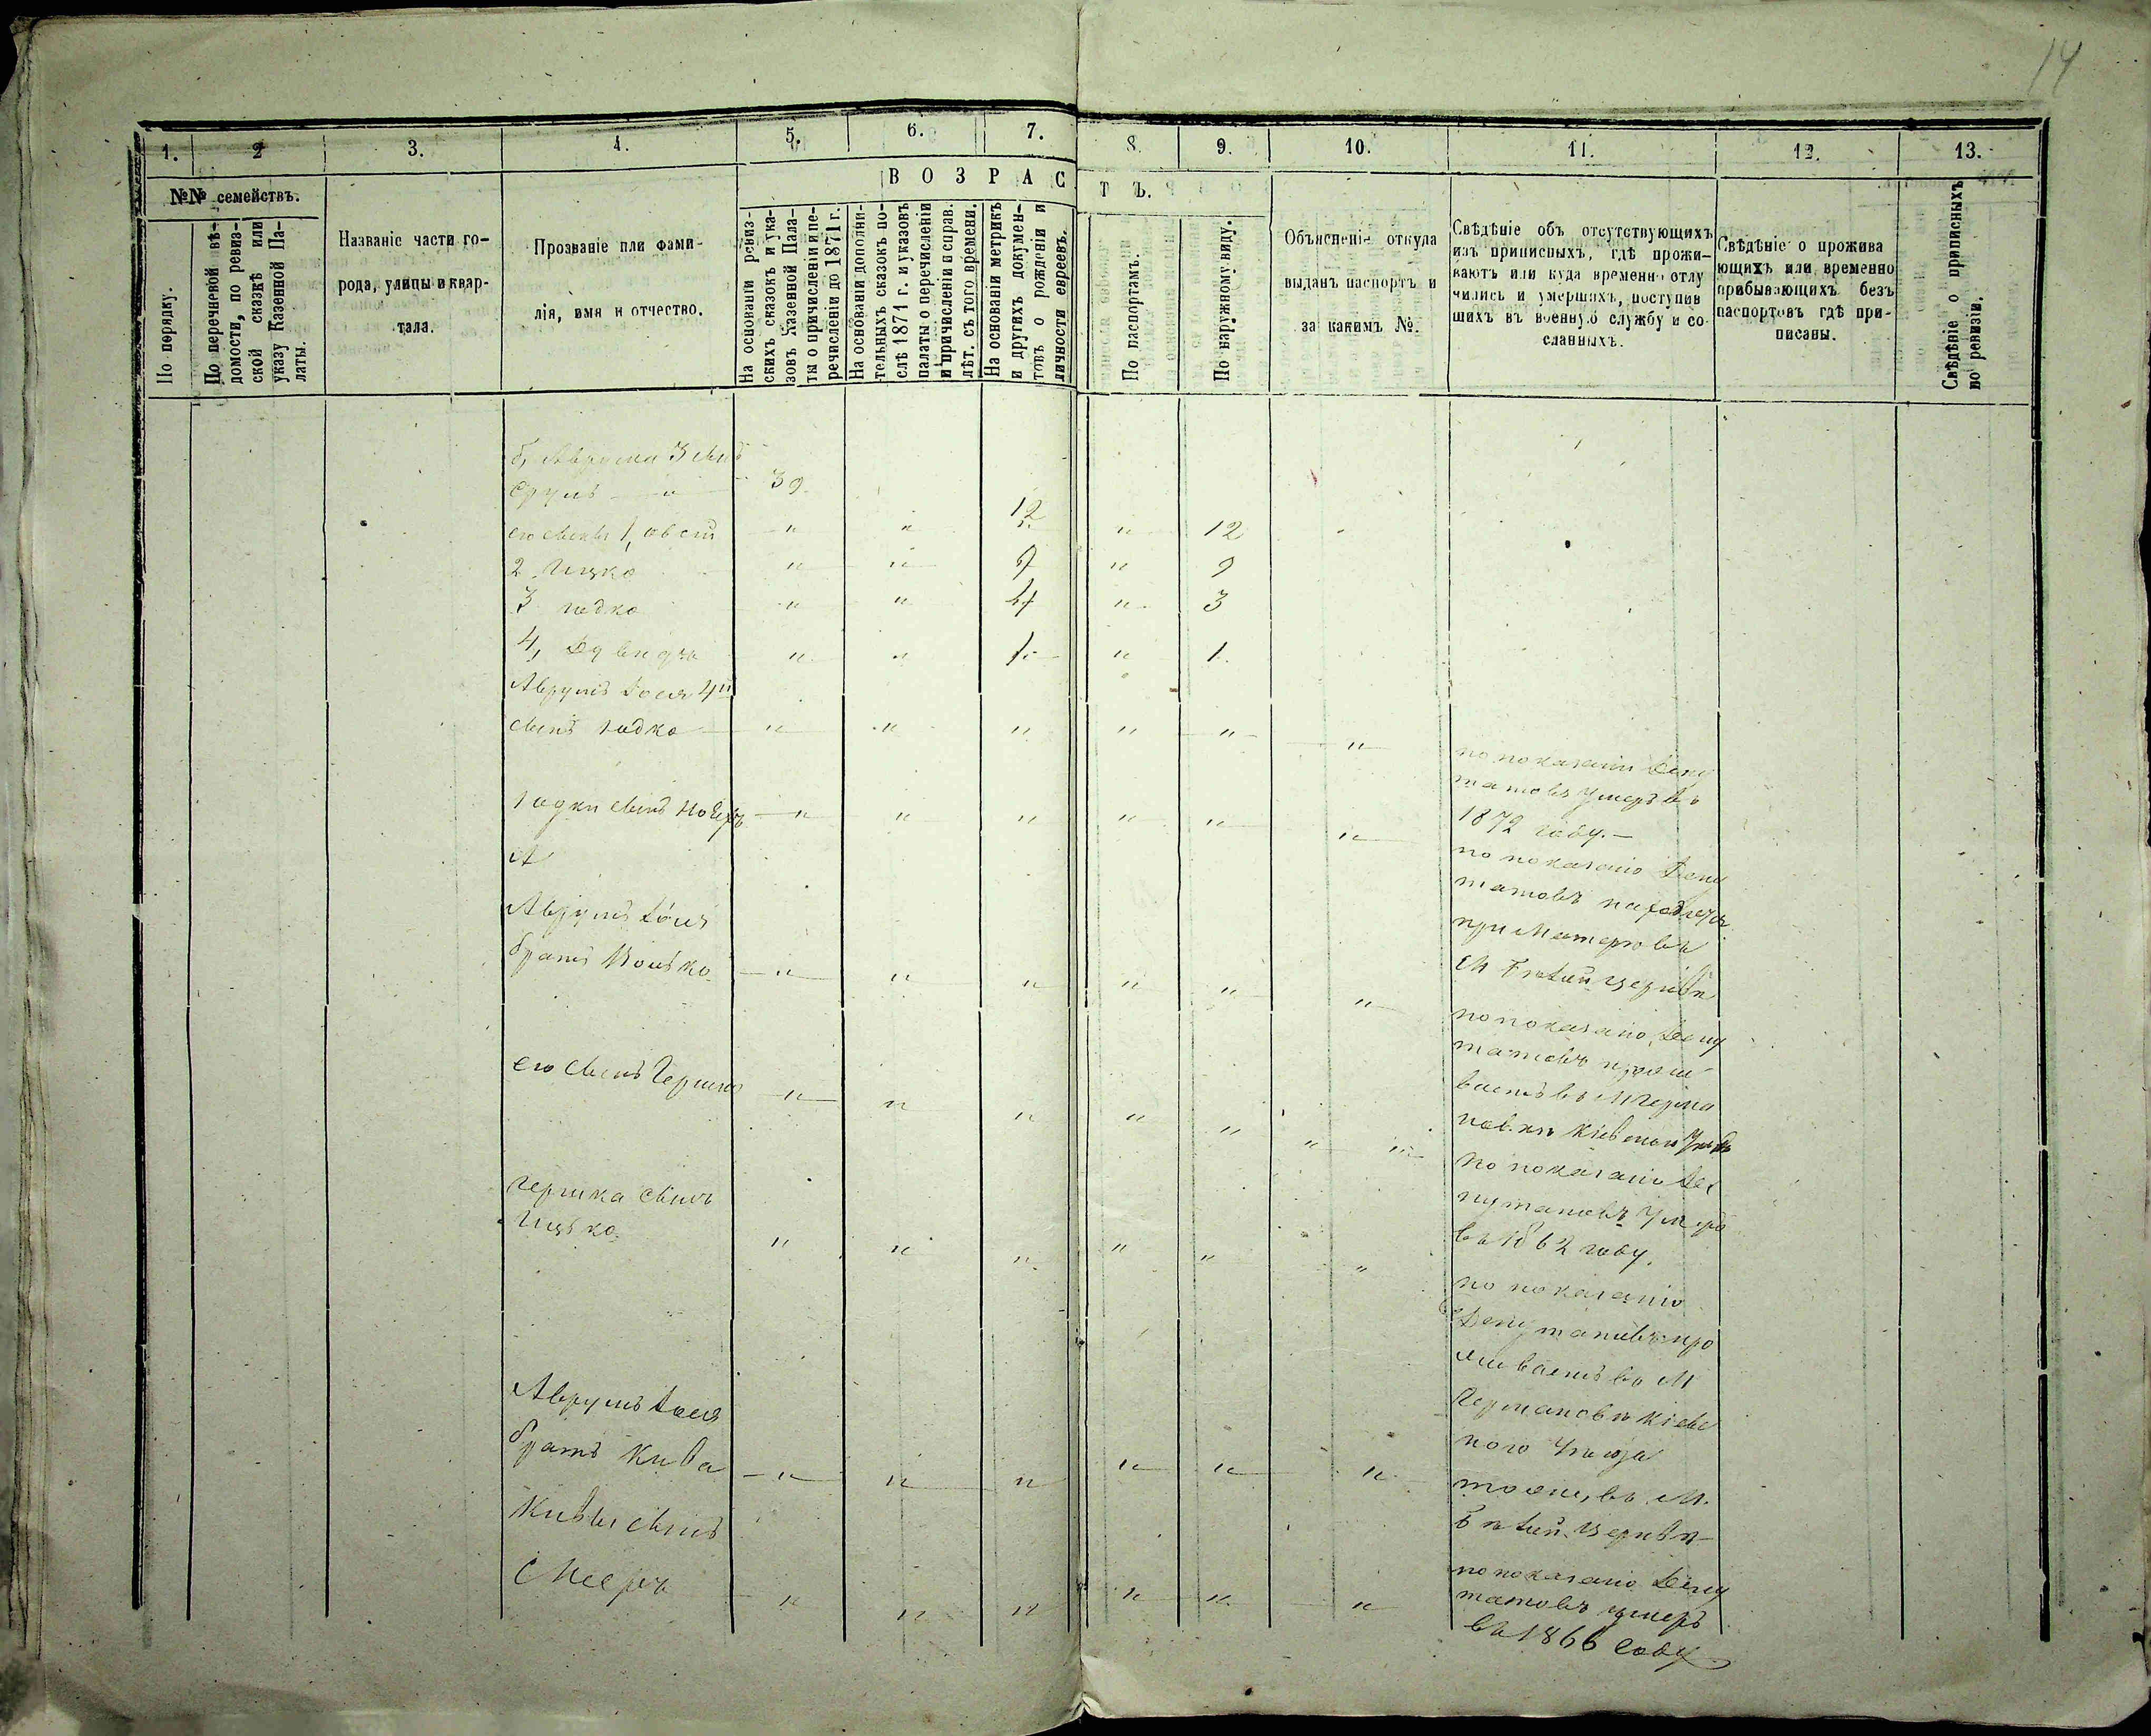 14
1. 2 3. 4. 5. 6. 7. 8. 9. 10. 11. 12. 13.
№№ семействъ.
По порядку.
По перечневой вѣ-
домости, по ревиз-
ской сказкѣ или
указу Казенной Па-
латы.
Названіе части го-
рода, улицы и квар-
тала.
Прозваніе или фами-
лія, имя и отчество.
ВОЗРАСТЪ.
На основаніи ревиз-
скихъ сказокъ и ука-
зовъ Казенной Пала-
ты о причисленіи и пе-
речисленіи до 1871 г.
На основаніи дополни-
тельныхъ сказокъ по-
слѣ 1871 г. и указовъ
палаты о перечисленіи
и причисленіи и справ.
лѣт. съ того времени.
На основаніи метрикъ
и другихъ докумен-
товъ о рожденіи и
личности евреевъ.
По паспортамъ.
По наружному виду.
Объясненіе откуда
выданъ паспортъ и
за какимъ №.
Свѣдѣніе объ отсутствующихъ
изъ приписныхъ, гдѣ прожи-
ваютъ или куда временно отлу
чились и умершихъ, поступив
шихъ въ военную службу и со
сланныхъ.
Свѣдѣніе о прожива
ющихъ или временно
прибывающихъ безъ
паспортовъ гдѣ при-
писаны.
Свѣдѣніе о приписныхъ
по ревизіи.
Аврума 3 сынъ
Сруль " 39
12
его сыновья 1, " " " 12
2. Ицко " " 9 " 9
3 " " 4 " 3
4, " " 1 " 1.
Аврумъ Іося 4й
сынъ Іодко " " " " " "
по показанію Депу
татовъ умеръ въ
1872 году.—
Іодки сынъ " " " " " "
по показанію Депу
татовъ находится
при Матери въ
М Бѣлой церкви
Аврумъ Іося
братъ Мошко " " " " " "
по показанію Депу
татовъ прожи
ваетъ въ М Герма
новкѣ Кіевскаго Уѣзда
его сынъ Гершко " " " " " "
по показанію Де
путатовъ Умеръ
въ 1862 году.
Гершка сынъ
Ицько " " " " " "
по показанію
Депутатовъ про
живаетъ въ М
Германовкѣ Кіевс
кого Уѣзда
Аврумъ Іося
братъ Кива " " " " " "
тоже, въ М.
Бѣлой Церкви
Кивы сынъ
Мееръ " " " " " "
по показанію Депу
татовъ умеръ
въ 1866 году